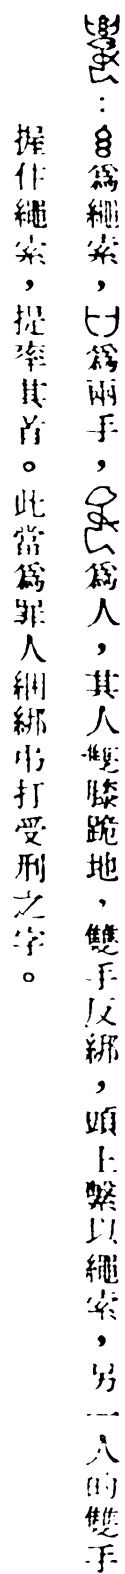 ：為繩索，為兩手，為人，其人雙膝跪地，雙手反綁，頭上繫以繩索，另一人的雙手
握作繩索，提牽其首。此當為罪人綑綁吊打受刑之字。